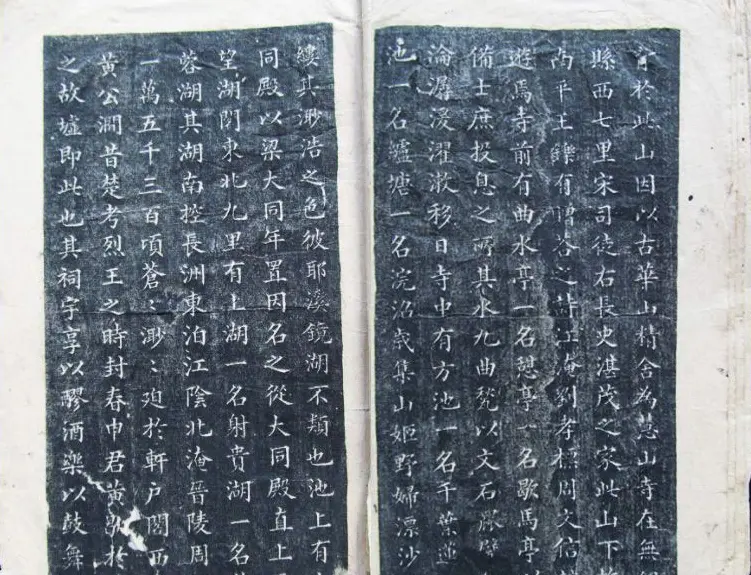 育於此山因以古華山精舍為惠山寺在無
縣西七里宋司徒右長史湛茂之家此山下
南平王鑠有贈答之詩江淹劉孝標周文信
遊焉寺前有曲水亭一名憩亭一名歇馬亭
備士庶投息之所其水九曲甃以文石
淪潺湲濯漱移日寺中有方池一名千葉蓮
池一名壚塘一名浣沼歲集山姬野婦漂沙
縷其渺浩之色彼耶溪鏡湖不類也池上有
同殿以梁大同年置因名之從大同殿直上
望湖閣東北九里有上湖一名射貴湖一名
蓉湖其湖南控長洲東泊江陰北淹晉陵周
一萬五千三百頃蒼〻渺〻迫於軒户閣西
黄公澗昔楚考烈王之時封春申君黄歇於
之故墟即此也其祠宇享以醪酒樂以鼓舞